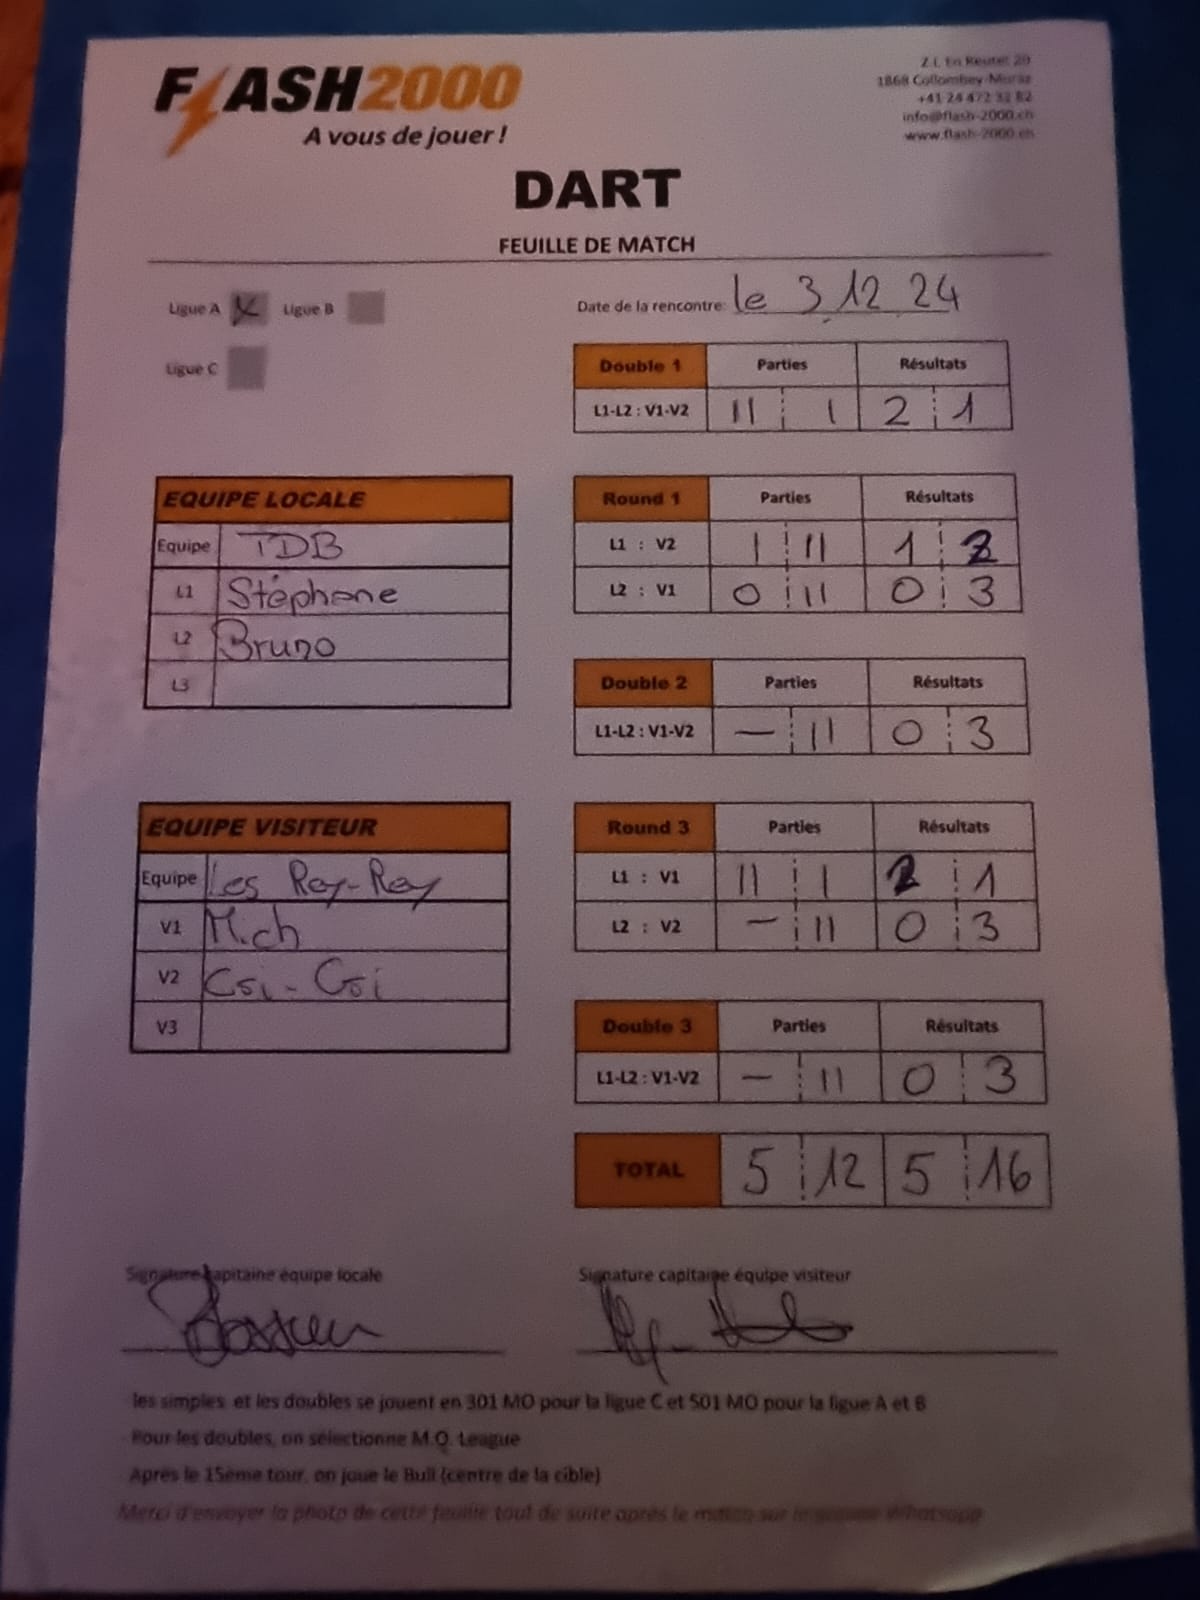 FLASH2000
A vous de jouer !
Z.I. En Reutet 20
1868 Collombey-Muraz
+41 24 472 32 82
info@flash-2000.ch
www.flash-2000.ch
DART
FEUILLE DE MATCH
Ligue A X Ligue B
Ligue C
Date de la rencontre: le 3 12 24
Double 1 Parties Résultats
L1-L2 : V1-V2 II I 2 1
EQUIPE LOCALE
Equipe TDB
L1 Stéphane
L2 Bruno
L3
Round 1 Parties Résultats
L1 : V2 I II 1 2
L2 : V1 0 II 0 3
Double 2 Parties Résultats
L1-L2 : V1-V2 — II 0 3
EQUIPE VISITEUR
Equipe Les Rey-Rey
V1 Mich
V2
V3
Round 3 Parties Résultats
L1 : V1 II I 2 1
L2 : V2 — II 0 3
Double 3 Parties Résultats
L1-L2 : V1-V2 — II 0 3
TOTAL 5 12 5 16
Signature capitaine équipe locale
Signature capitaine équipe visiteur
les simples et les doubles se jouent en 301 MO pour la ligue C et 501 MO pour la ligue A et B
Pour les doubles, on sélectionne M.O. League
Après le 15ème tour, on joue le Bull (centre de la cible)
Merci d'envoyer la photo de cette feuille tout de suite après le match sur le groupe Whatsapp